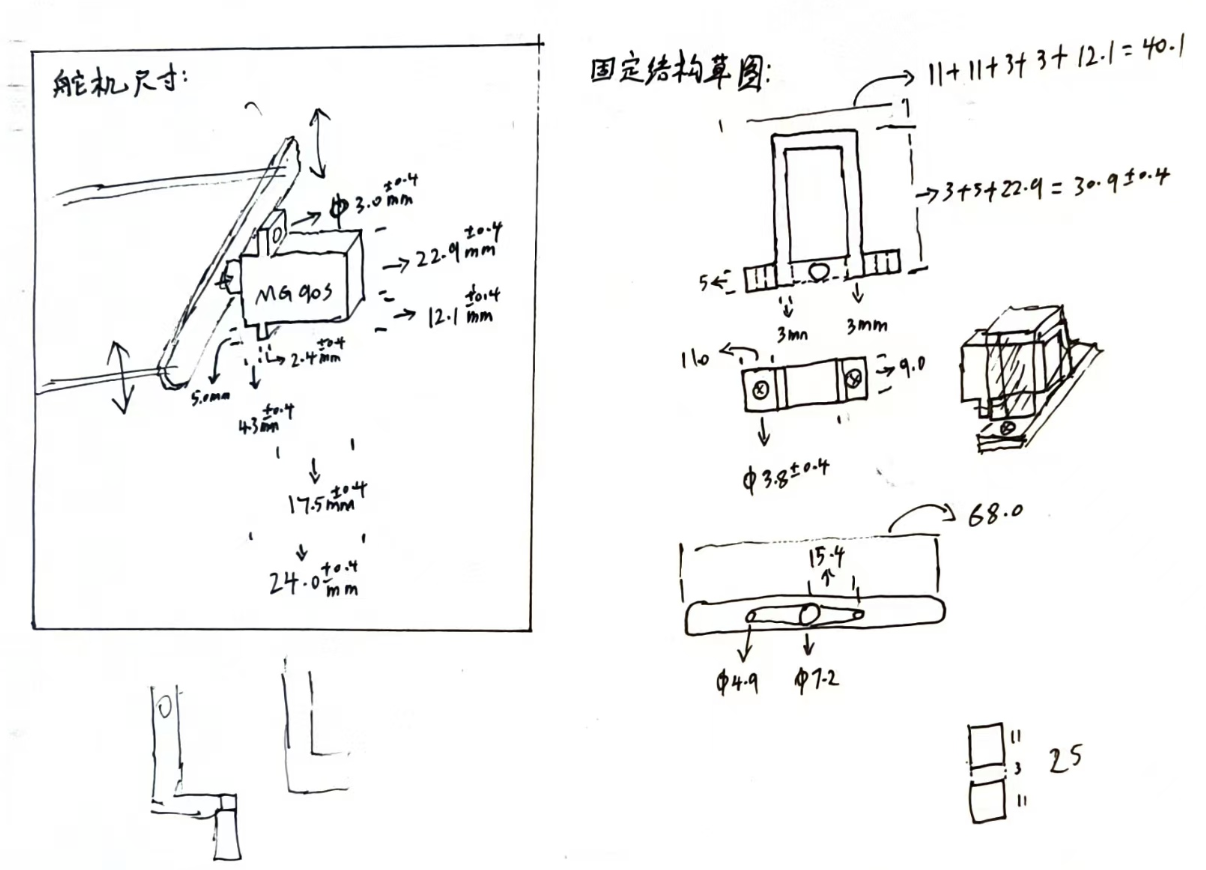 舵机尺寸:
Φ3.0±0.4mm
22.9±0.4mm
MG90S
12.1±0.4mm
2.4±0.4mm
5.0mm
4.3±0.4mm
17.5±0.4mm
24.0±0.4mm
固定结构草图:
11+11+3+3+12.1=40.1
3+5+22.9=30.9±0.4
5
3mm
3mm
11.0
9.0
Φ3.8±0.4
68.0
15.4
Φ4.9
Φ7.2
11
3
25
11